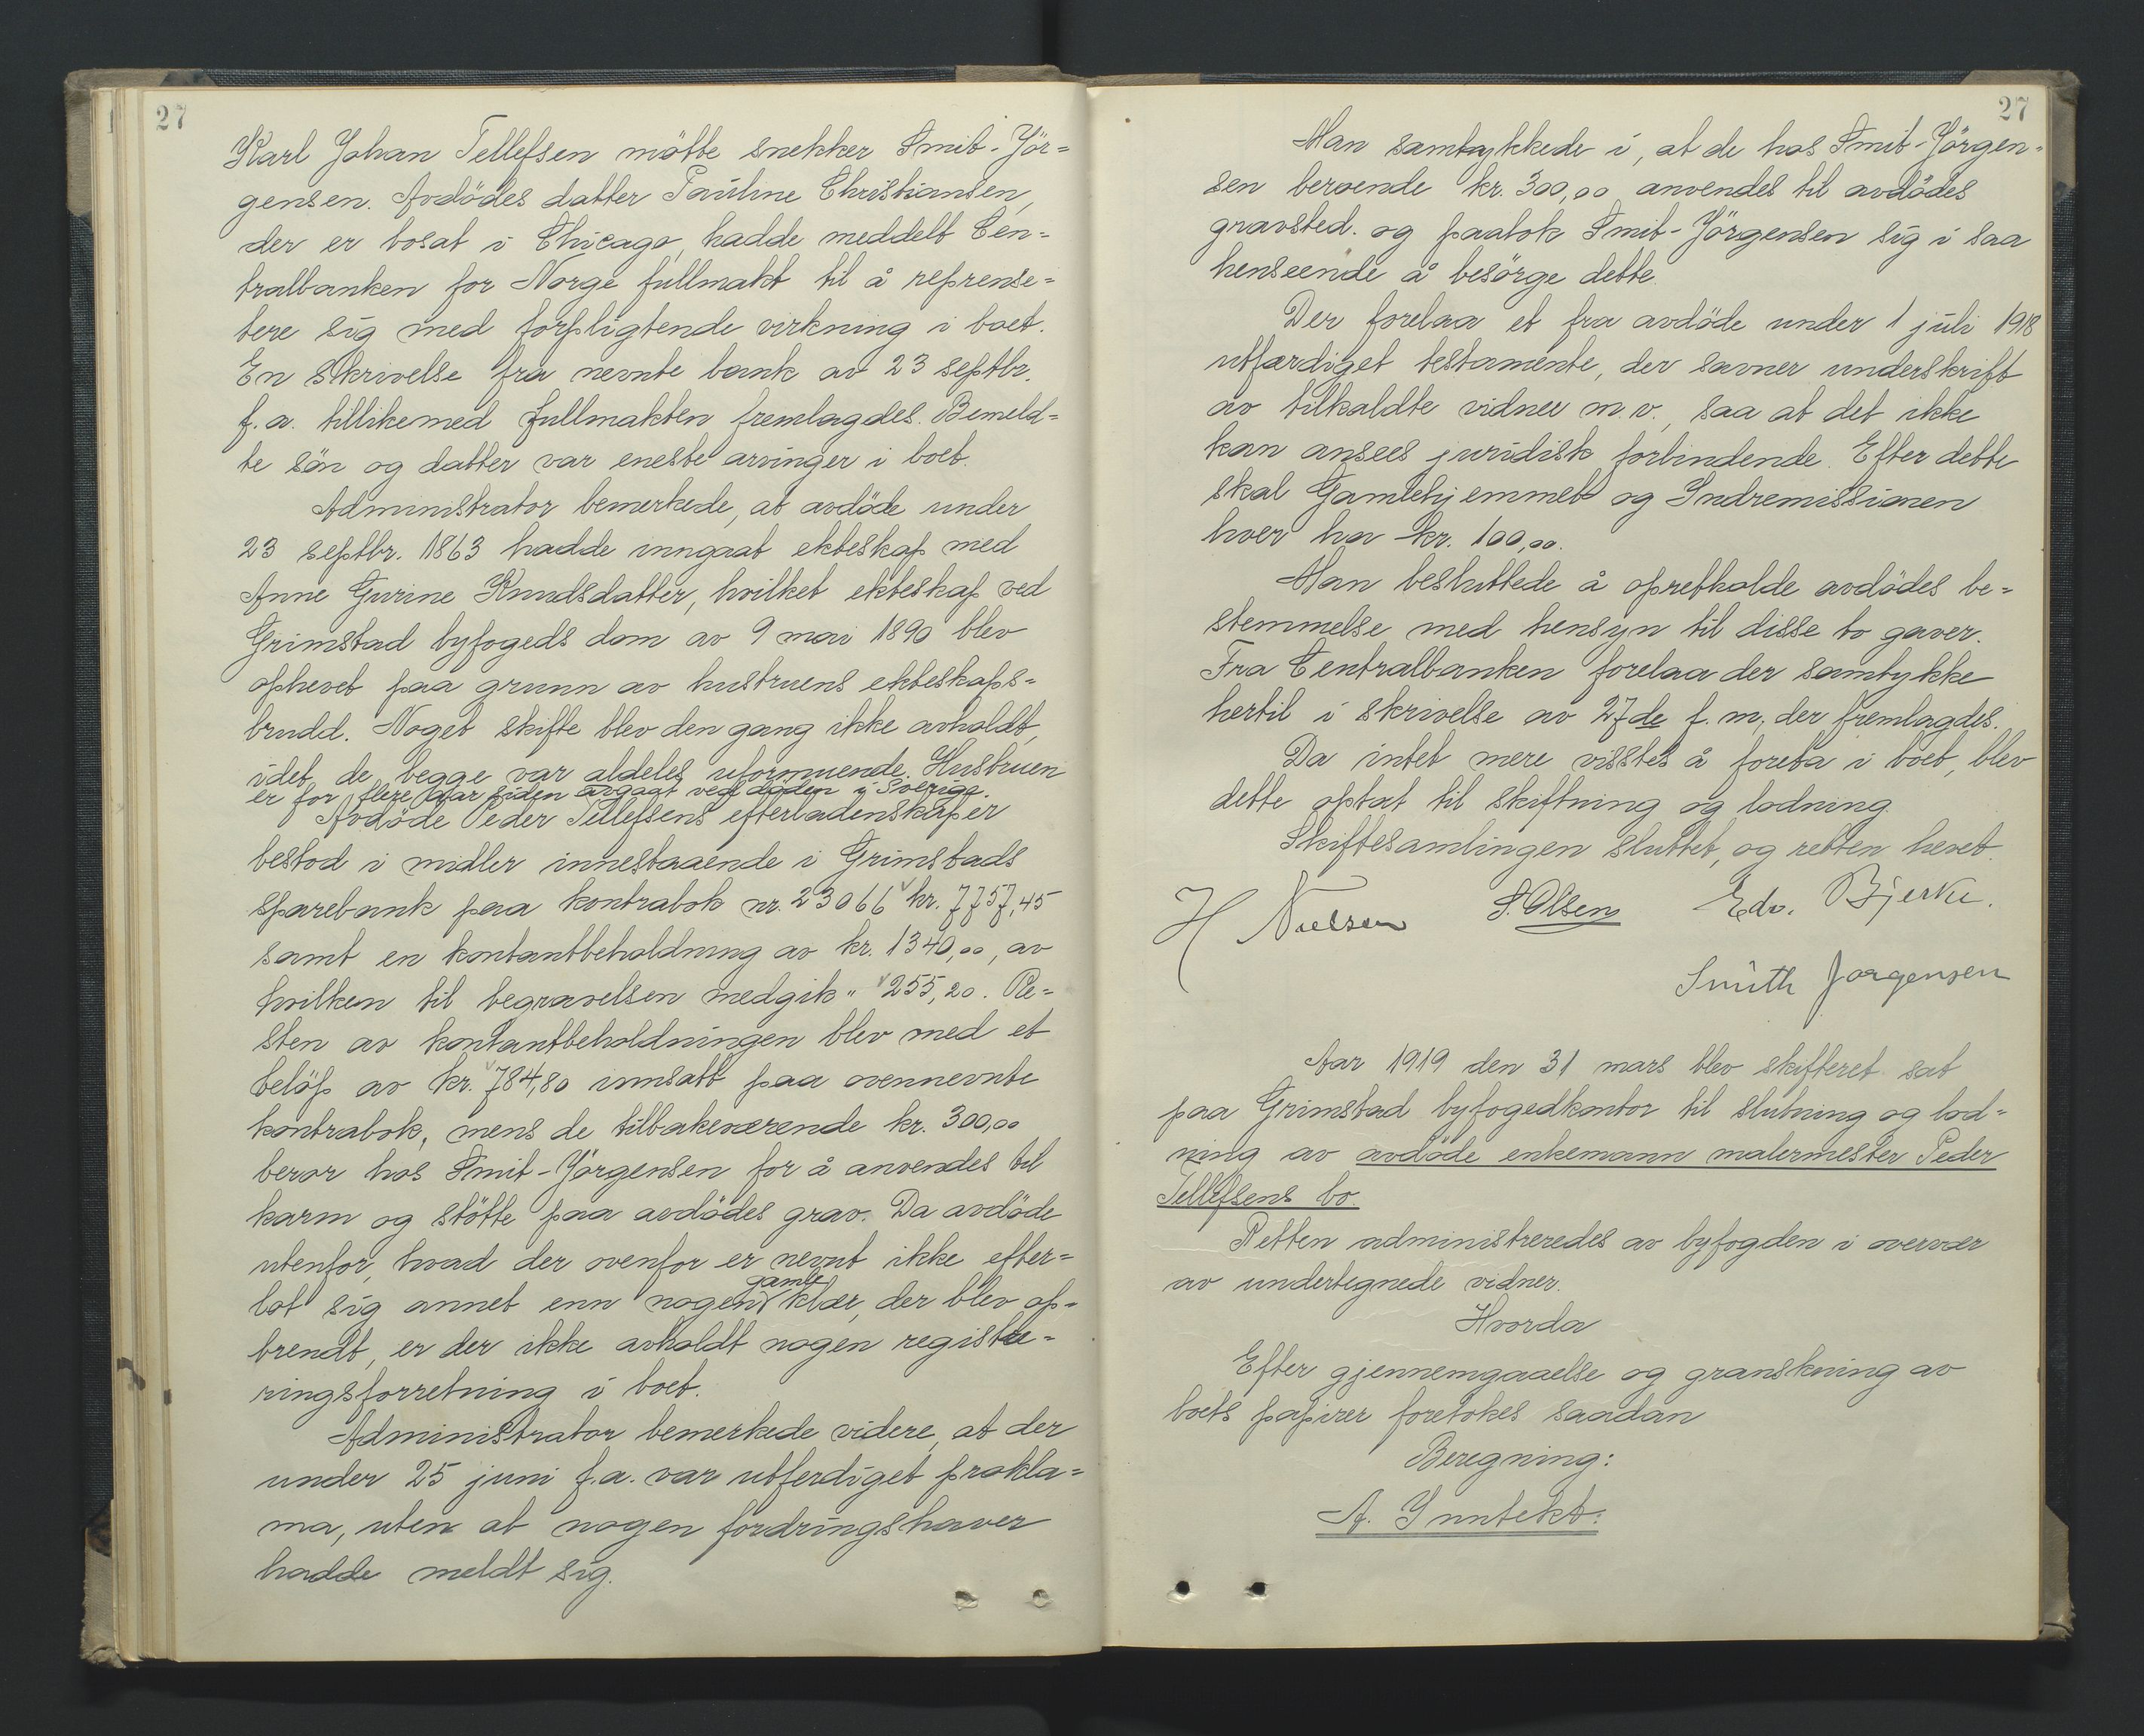 27
Karl Johan Tellefsen mötte snekker Smit-Jör=
gensen. Avdödes datter Pauline Christiansen,
der er bosat i Chicago, hadde meddelt Cen=
tralbanken for Norge fullmakt til å reprense=
tere sig med forpligtende virkning i boet.
En skrivelse fra nevnte bank av 23 septbr.
f.a. tillikemed fullmakten fremlagdes. Bemeld=
te sön og datter var eneste arvinger i boet.
Administrator bemerkede, at avdöde under
23 septbr. 1863 hadde inngaat ekteskap med
Anne Gurine Knudsdatter, hvilket ekteskap ved
Grimstad byfogeds dom av 9 mai 1890 blev
ophevet paa grunn av hustruens ekteskaps=
brudd. Noget skifte blev den gang ikke avholdt,
idet de begge var aldeles uformuende. Hustruen
er for flere aar siden avgaat ved döden i Sverige.
Avdöde Peder Tellefsens efterladenskaper
bestod i midler innestaaende i Grimstads
sparebank paa kontrabok nr. 23066 kr. 7757,45
samt en kontantbeholdning av kr. 1340,00, av
hvilken til begravelsen medgik " 255,20. Re=
sten av kontantbeholdningen blev med et
belöp av kr. 784,80 innsatt paa ovennevnte
kontrabok, mens de tilbakeværende kr. 300,00
beror hos Smit-Jörgensen for å anvendes til
karm og stötte paa avdödes grav. Da avdöde
utenfor, hvad der ovenfor er nevnt ikke efter=
lot sig annet enn nogen gamle klær, der blev op=
brendt, er der ikke avholdt nogen registre=
ringsforretning i boet.
Administrator bemerkede videre, at der
under 25 juni f.a. var utferdiget prokla=
ma, uten at nogen fordringshaver
hadde meldt sig.
27
Man samtykkede i, at de hos Smit-Jörgen=
sen beroende kr. 300,00 anvendes til avdödes
gravsted. og paatok Smit-Jörgensen sig i saa
henseende å besörge dette.
Der forelaa et fra avdöde under 1 juli 1918
utfærdiget testamente, der savner underskrift
av tilkaldte vidner m.v., saa at det ikke
kan ansees juridisk forbindende. Efter dette
skal Gamlehjemmet og Indremissionen
hver ha kr. 100,00.
Man besluttede å opretholde avdödes be=
stemmelse med hensyn til disse to gaver.
Fra Centralbanken forelaa der samtykke
hertil i skrivelse av 27de f.m, der fremlagdes.
Da intet mere visstes å foreta i boet, blev
dette optat til skiftning og lodning.
Skiftesamlingen sluttet, og retten hevet.
H Nielsen S. Olsen Edv. Bjerke.
Smith Jørgensen
Aar 1919 den 31 mars blev skifteret sat
paa Grimstad byfogedkontor til slutning og lod=
ning av avdöde enkemann malermester Peder
Tellefsens bo.
Retten administreredes av byfogden i overvær
av undertegnede vidner.
Hvorda
Efter gjennemgaaelse og granskning av
boets papirer foretokes saadan
Beregning:
A. Inntekt: